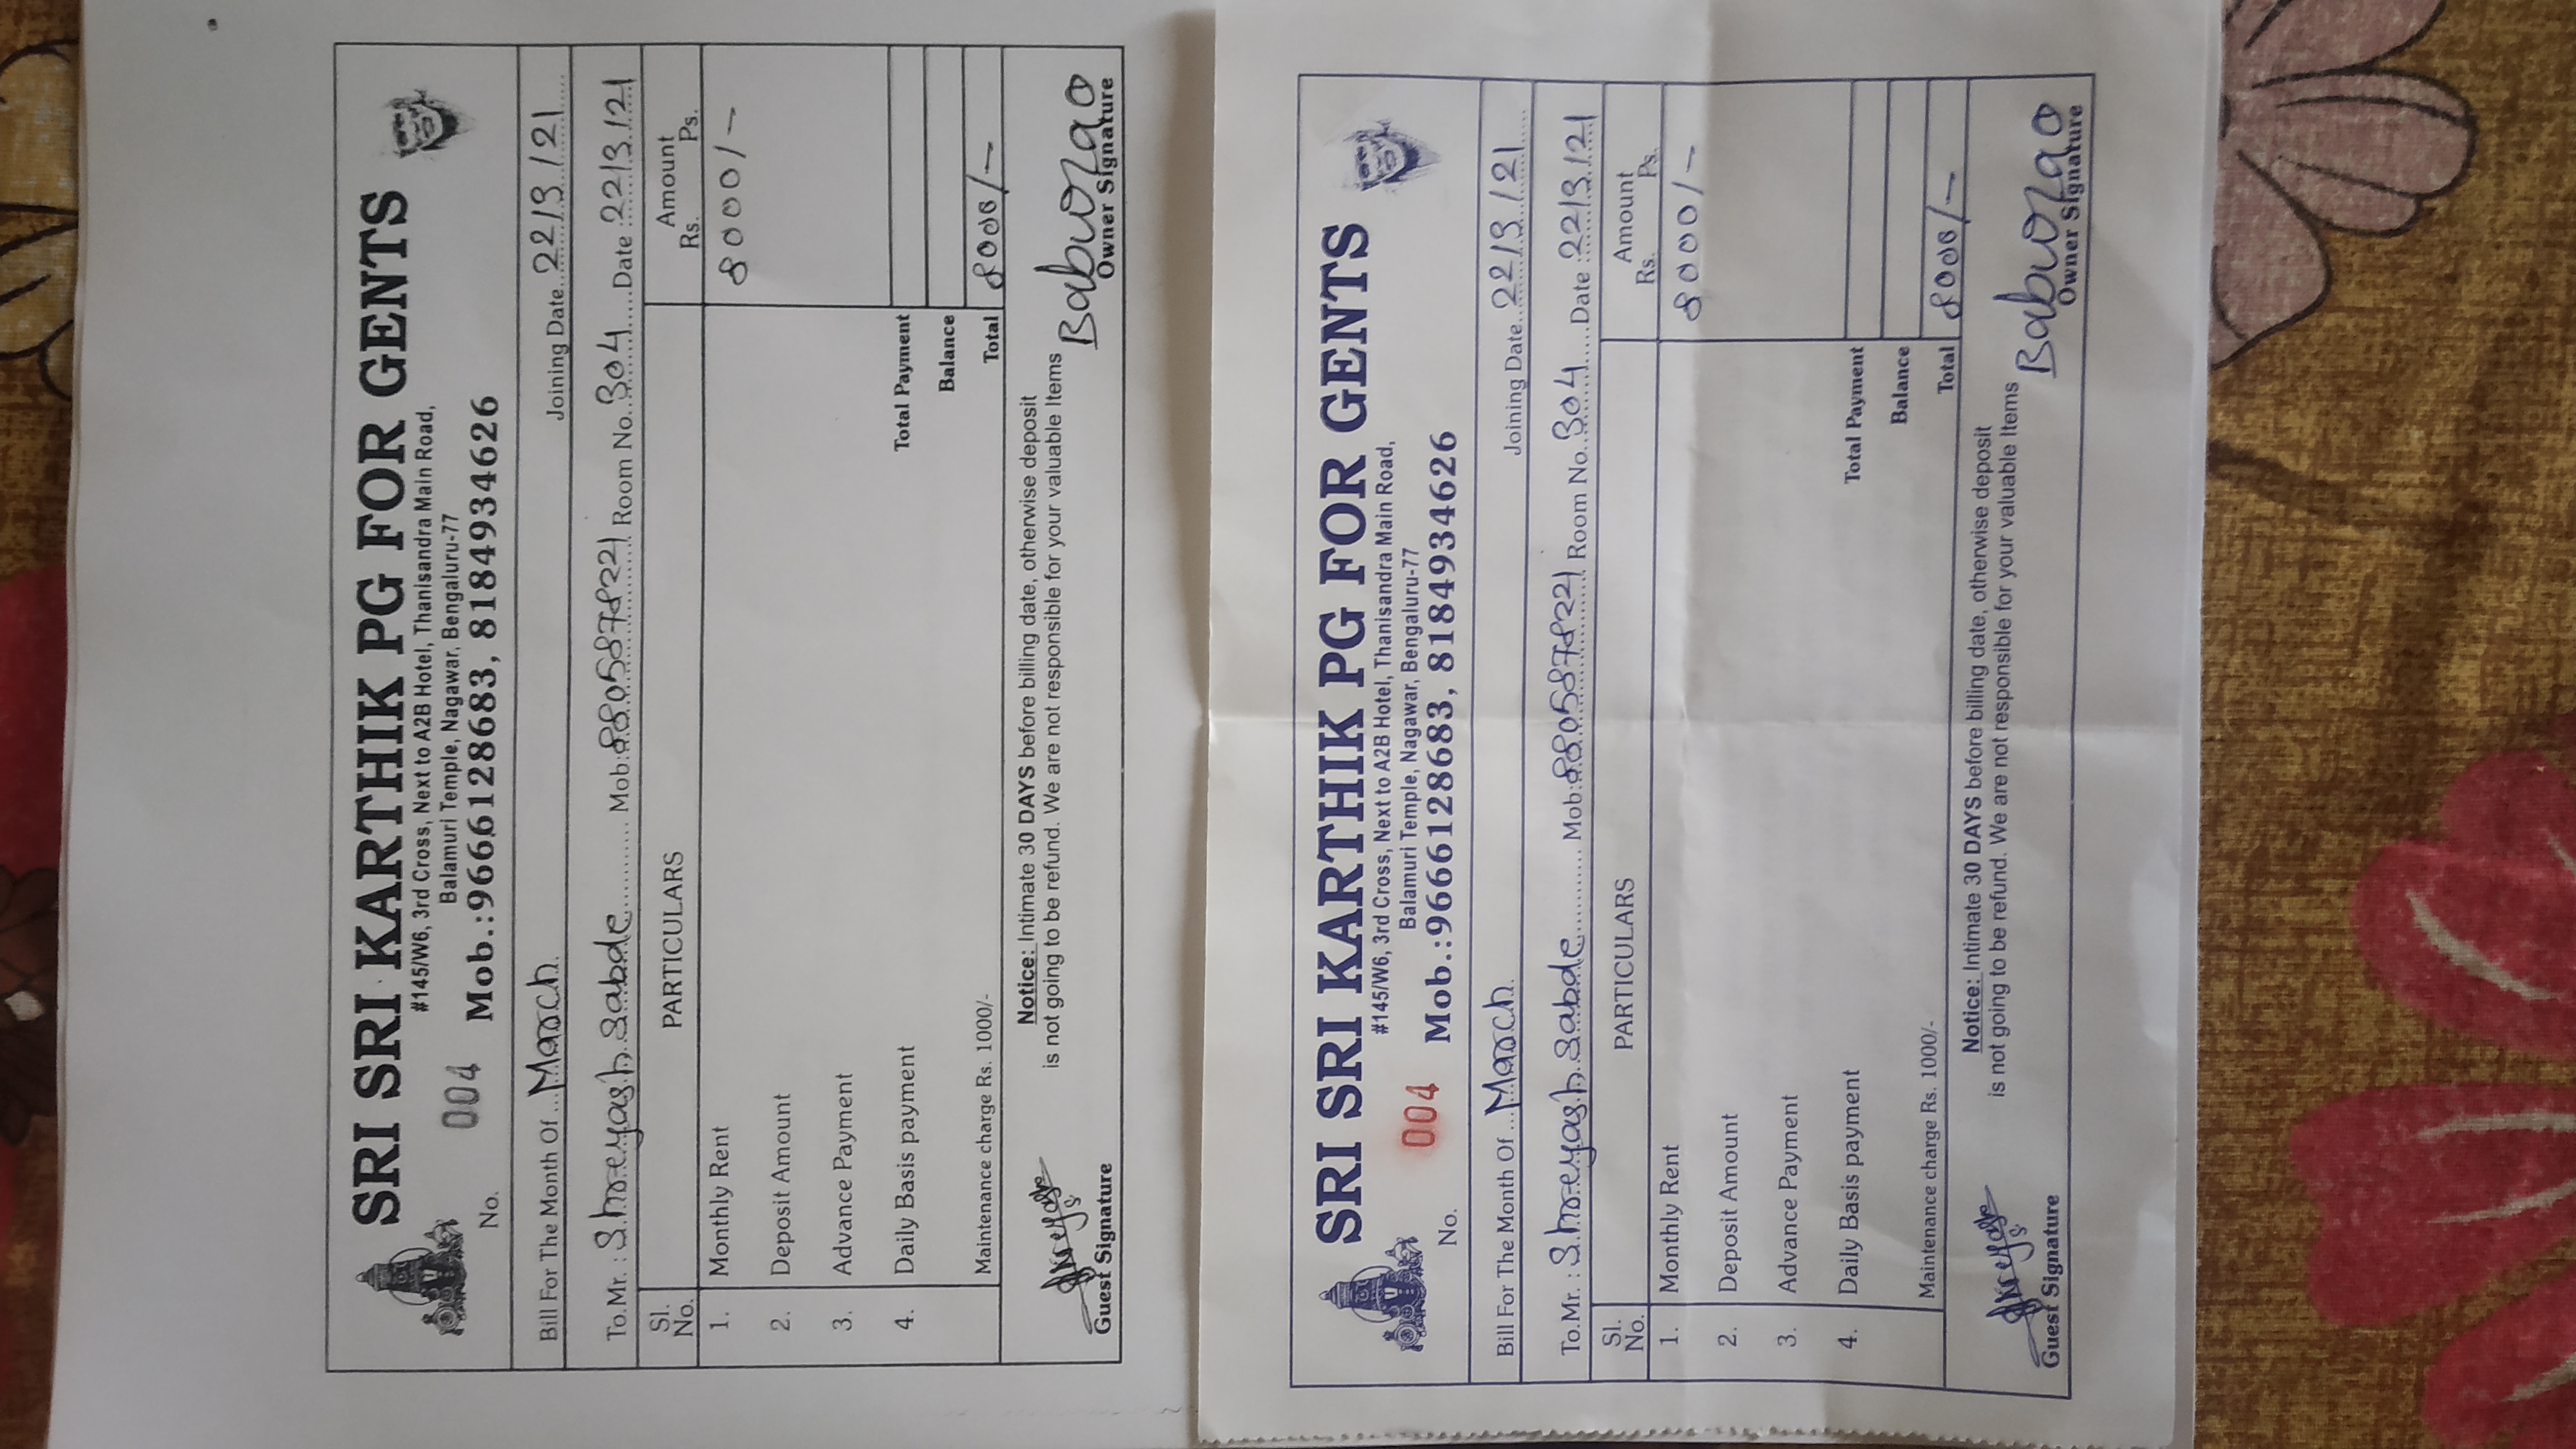 SRI SRI KARTHIK PG FOR GENTS
#145/W6, 3rd Cross, Next to A2B Hotel, Thanisandra Main Road,
Balamuri Temple, Nagawar, Bengaluru-77
No. 004 Mob.:9666128683, 8184934626
Bill For The Month Of ... March Joining Date 22/3/21
To.Mr. : Shreyash Sabde Mob: 8805878221 Room No. 304 Date 22/3/21
Sl. No. PARTICULARS Amount Rs. Ps.
1. Monthly Rent 8000/-
2. Deposit Amount
3. Advance Payment
4. Daily Basis payment Total Payment
Balance
Maintenance charge Rs. 1000/- Total 8000/-
Notice: Intimate 30 DAYS before billing date, otherwise deposit
is not going to be refund. We are not responsible for your valuable Items
Shreyash S Baburao
Guest Signature Owner Signature
SRI SRI KARTHIK PG FOR GENTS
#145/W6, 3rd Cross, Next to A2B Hotel, Thanisandra Main Road,
Balamuri Temple, Nagawar, Bengaluru-77
No. 004 Mob.:9666128683, 8184934626
Bill For The Month Of ... March Joining Date 22/3/21
To.Mr. : Shreyash Sabde Mob: 8805878221 Room No. 304 Date 22/3/21
Sl. No. PARTICULARS Amount Rs. Ps.
1. Monthly Rent 8000/-
2. Deposit Amount
3. Advance Payment
4. Daily Basis payment Total Payment
Balance
Maintenance charge Rs. 1000/- Total 8000/-
Notice: Intimate 30 DAYS before billing date, otherwise deposit
is not going to be refund. We are not responsible for your valuable Items
Shreyash S Baburao
Guest Signature Owner Signature